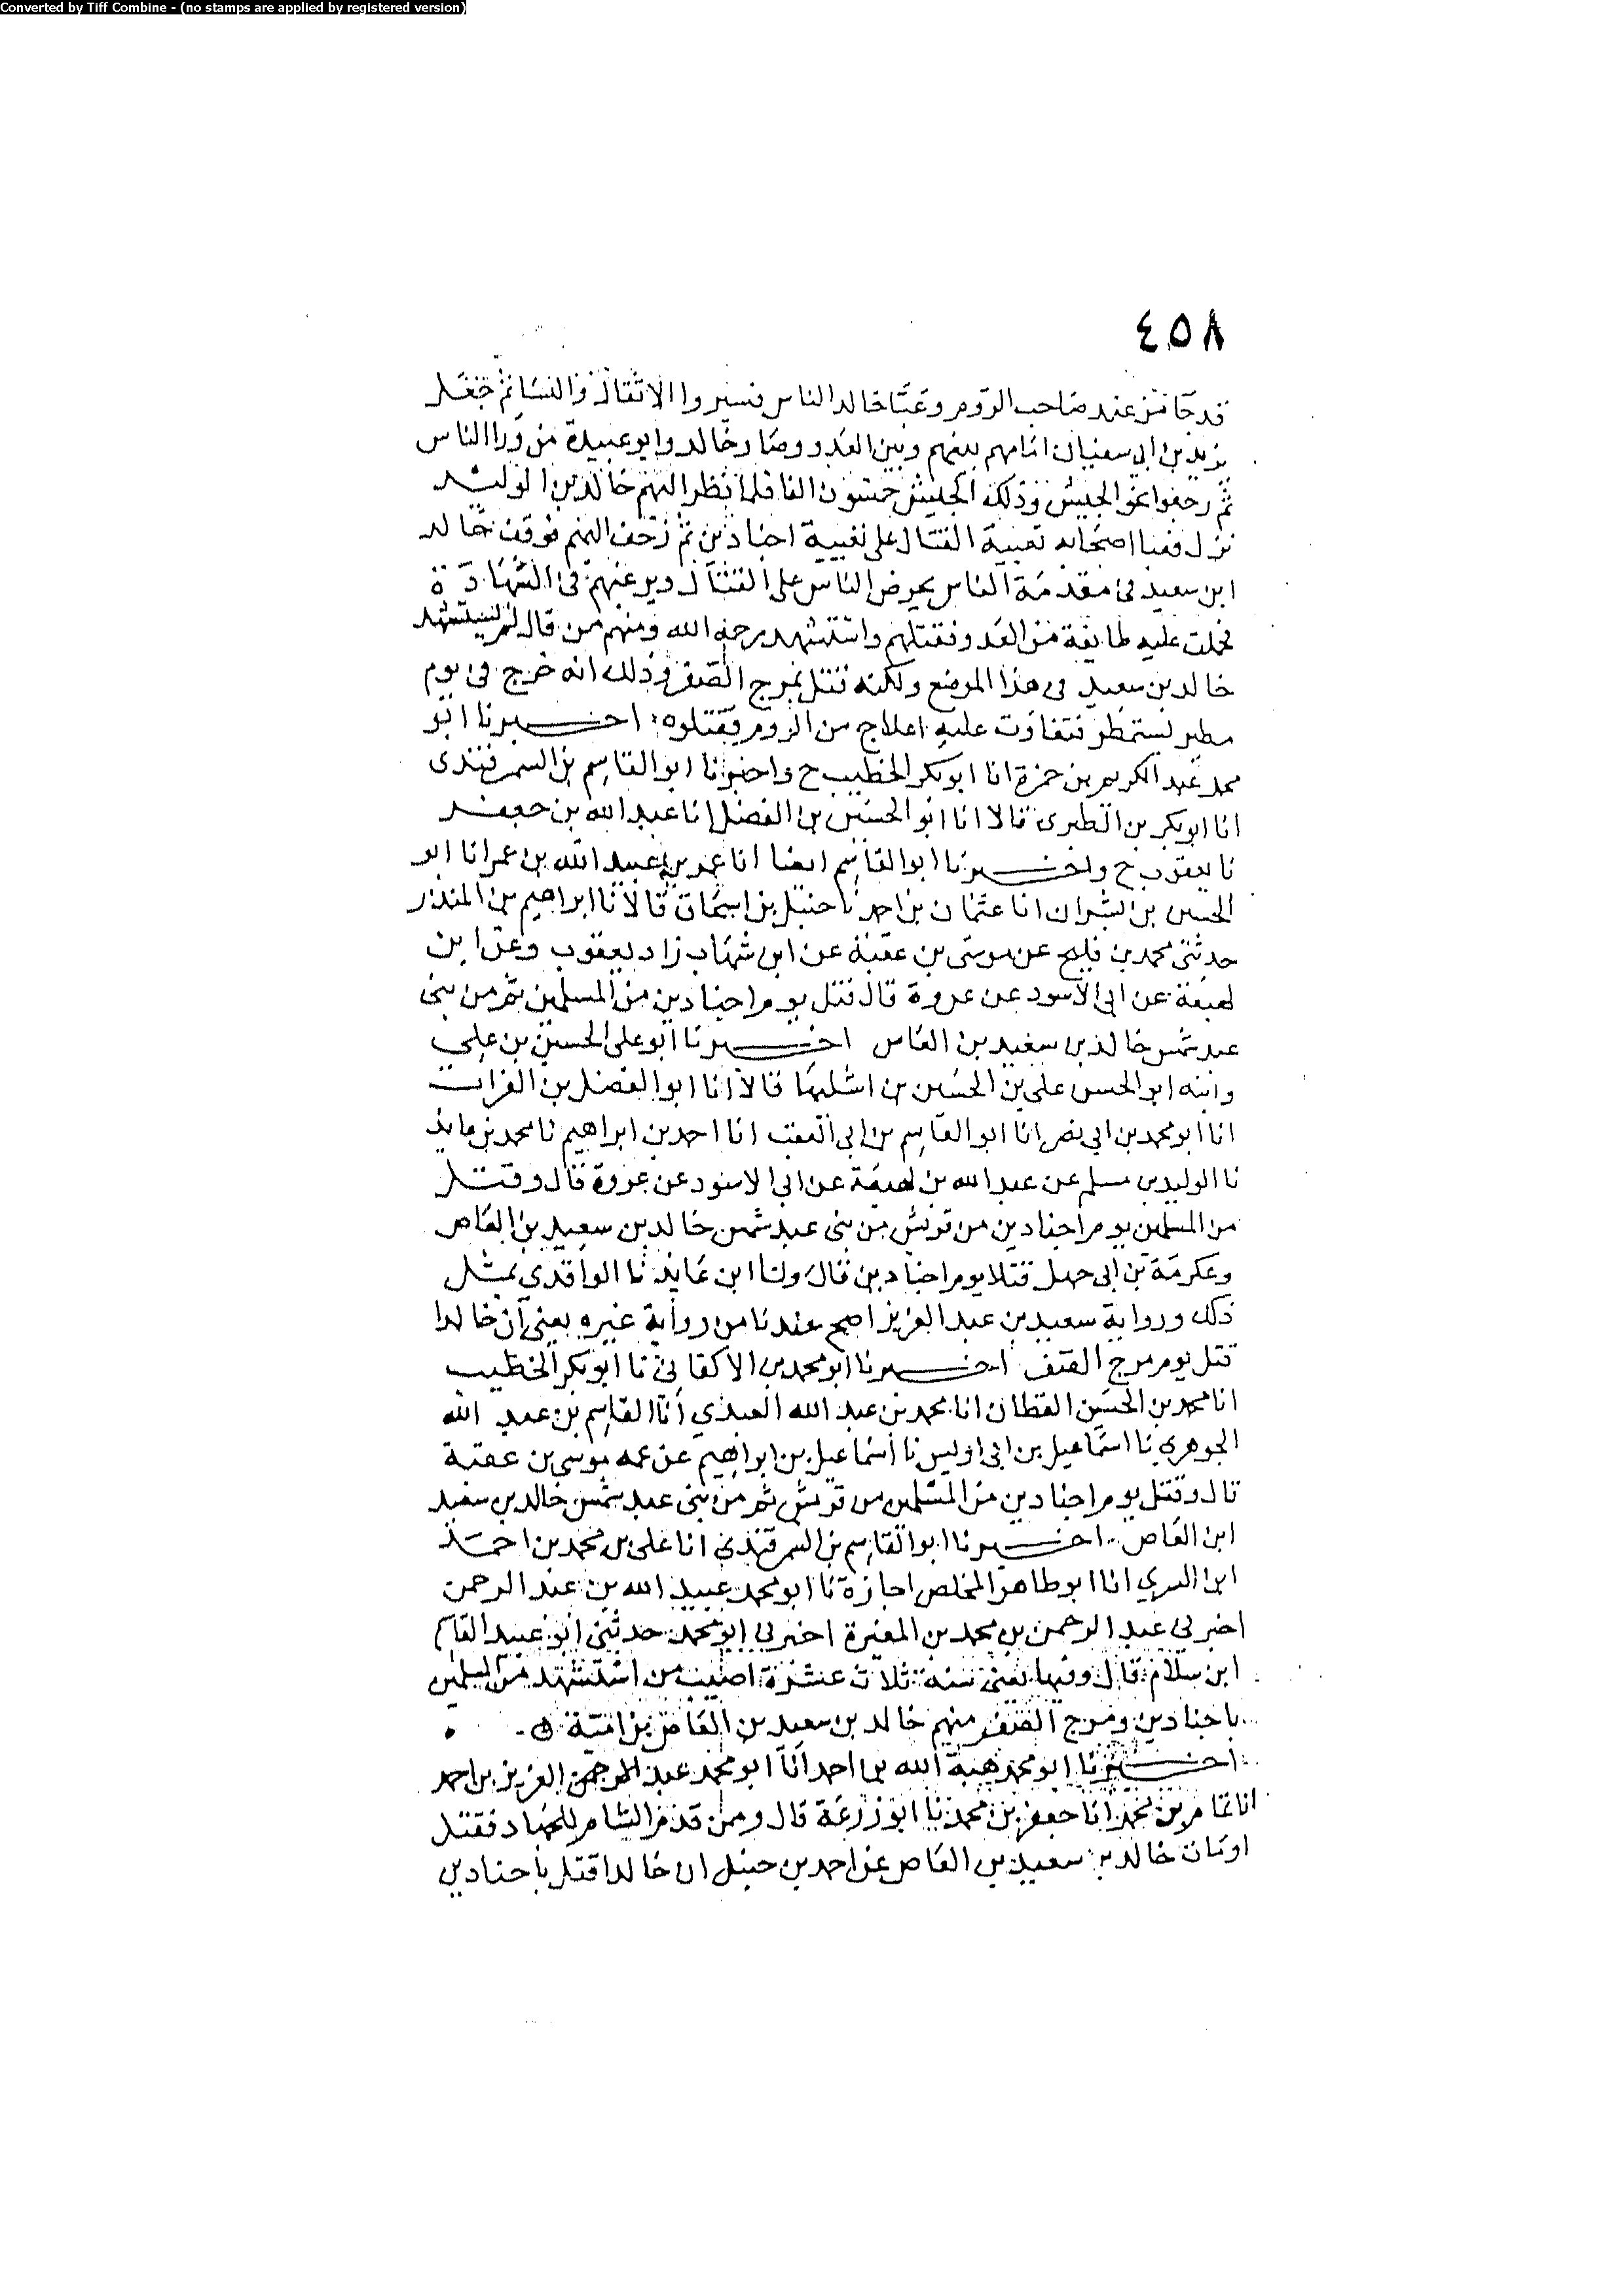 Converted by Tiff Combine - (no stamps are applied by registered version)
٤٥٨
قد جا من عند صاحب الروم وعبا خالد الناس فسيروا الاثقال والنسا ثم جعل
يزيد بن ابي سفيان امامهم بينهم وبين العدو وصار خالد وابو عبيدة من ورا الناس
ثم رجعوا نحو الجيش وذلك الجيش خمسون الفا فلما نظر اليهم خالد بن الوليد
نزل فعبا اصحابه تعبية القتال على تعبية اجنادين ثم زحف اليهم فوقف خالد
ابن سعيد في مقدمة الناس يحرض الناس على القتال ويرغبهم في الشهادة
فحملت عليه طايفة من العدو فقتلهم واستشهد رحمه الله ومنهم من قال لم يستشهد
خالد بن سعيد في هذا الموضع ولكنه قتل بمرج الصفر وذلك انه خرج في يوم
مطير يستمطر فتعاوت عليه اعلاج من الروم فقتلوه اخبرنا ابو
محمد عبد الكريم بن حمزة انا ابو بكر الخطيب ح واخبرنا ابو القاسم بن السمرقندى
انا ابو بكر بن الطبرى قالا انا ابو الحسين بن الفضل انا عبد الله بن جعفر
نا يعقوب ح واخبرنا ابو القاسم ايضا انا عمر بن عبيد الله بن عمر انا ابو
الحسين بن بشران انا عثمان بن احمد نا حنبل بن اسحاق قالا نا ابراهيم بن المنذر
حدثنى محمد بن فليح عن موسى بن عقبة عن ابن شهاب زاد يعقوب وعن ابن
لهيعة عن ابي الاسود عن عروة قال قتل يوم اجنادين من المسلمين ثم من بنى
عبد شمس خالد بن سعيد بن العاص اخبرنا ابو على الحسين بن على
وابنه ابو الحسن على بن الحسين بن اشليها قالا انا ابو الفضل بن الفرات
انا ابو محمد بن ابي نصر انا ابو القاسم بن ابي العقب انا احمد بن ابراهيم نا محمد بن عايذ
نا الوليد بن مسلم عن عبد الله بن لهيعة عن ابي الاسود عن عروة قال وقتل
من المسلمين يوم اجنادين من قريش من بنى عبد شمس خالد بن سعيد بن العاص
وعكرمة بن ابي جهل قتلا يوم اجنادين قال ولنا ابن عايذ نا الواقدي بمثل
ذلك ورواية سعيد بن عبد العزيز اصح عندنا من رواية غيره يعنى ان خالدا
قتل يوم مرج الصفر اخبرنا ابو محمد بن الاكفاني نا ابو بكر الخطيب
انا محمد بن الحسين القطان انا محمد بن عبد الله العبدي انا القاسم بن عبد الله
الجوهري نا اسماعيل بن ابي اويس نا اسماعيل بن ابراهيم عن عمه موسى بن عقبة
قال وقتل يوم اجنادين من المسلمين من قريش ثم من بنى عبد شمس خالد بن سعيد
ابن العاص اخبرنا ابو القاسم بن السمرقندي انا على بن محمد بن احمد
ابن السري انا ابو طاهر المخلص اجازة نا ابو محمد عبيد الله بن عبد الرحمن
اخبرني عبد الرحمن بن محمد بن المغيرة اخبرني ابو محمد حدثنى ابو عبيد القاسم
ابن سلام قال وفيها يعنى سنة ثلاث عشرة اصيب من استشهد من المسلمين
باجنادين ومرج الصفر منهم خالد بن سعيد بن العاص بن امية
اخبرنا ابو محمد هبة الله بن احمد انا ابو محمد عبد العزيز بن احمد
انا تمام بن محمد انا جعفر بن محمد نا ابو زرعة قال وممن قدم الشام للجهاد فقتل
او مات خالد بن سعيد بن العاص عن احمد بن حنبل ان خالدا قتل باجنادين